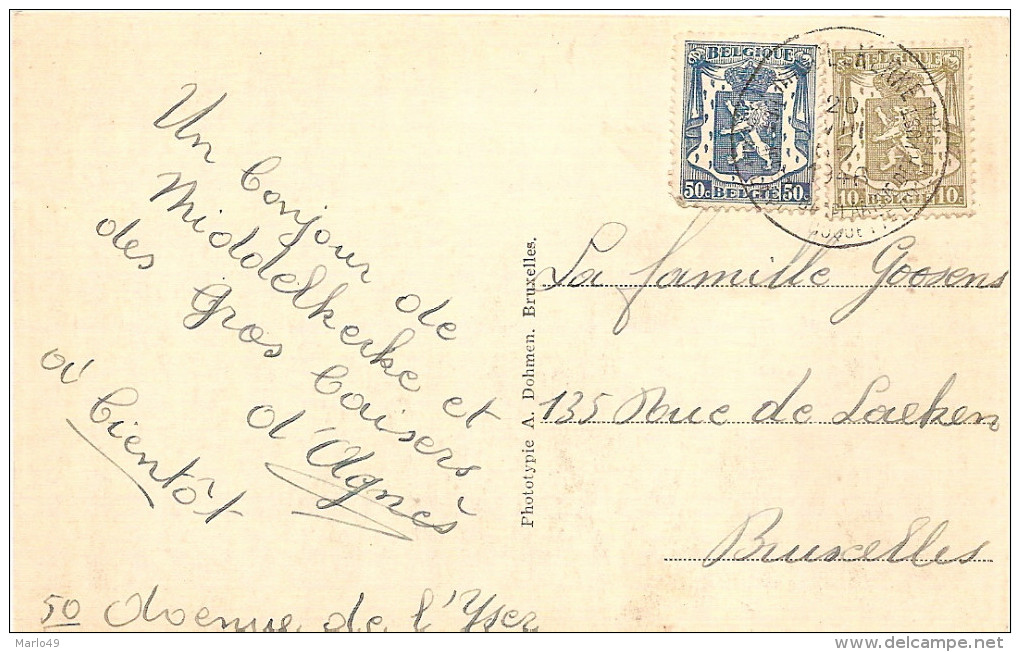 Un bonjour de
Middelkerke et
des gros baisers
d'Agnès
à bientôt
50 Avenue de l'Yser
Phototypie A. Dohmen. Bruxelles.
BELGIQUE
50c BELGIE 50c
BELGIQUE
10c BELGIE 10c
20
La famille Goosens
135 Rue de Laeken
Bruxelles
Marlo49
delcampe.net